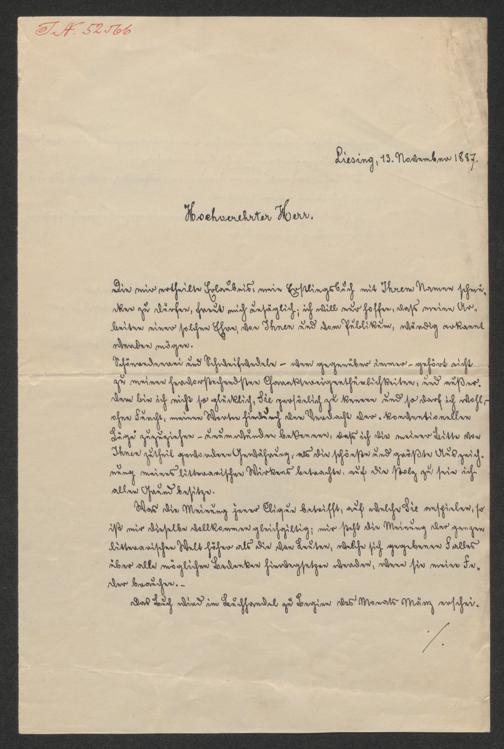 I.N. 52566
Liesing, 13. November 1887.
Hochverehrter Herr.
Die mir ertheilte Erlaubnis, mein Erstlingsbuch mit Ihrem Namen schmü-
cken zu dürfen, freut mich unsäglich; ich will nur hoffen, daß meine Ar-
beiten einer solchen Ehre, von Ihnen und dem Publikum, würdig erkannt
werden mögen.
Schönrednerei und Schweifwedeln – wem gegenüber immer – gehört nicht
zu meinen hervorstechendsten Charaktereigenthümlichkeiten, und außer-
dem bin ich nicht so glücklich, Sie persönlich zu kennen und so darf ich wohl, –
ohne Furcht, meinen Worten hiedurch den Verdacht der „konventionellen
Lüge“ zuzuziehen – unumwunden bekennen, daß ich die meiner Bitte von
Ihnen zutheil gewordene Gewährung, als die schönste und größte Auszeich-
nung meines litterarischen Wirkens betrachte, auf die stolz zu sein ich
allen Grund besitze.
Was die Meinung jener Clique betrifft, auf welche Sie anspielen, so
ist mir dieselbe vollkommen gleichgiltig; mir steht die Meinung der ganzen
litterarischen Welt höher als die von Leuten, welche sich gegebenen Falles
über alle möglichen Bedenken hinwegsetzen werden, wenn sie meine Fe-
der brauchen. –
Das Buch wird im Buchhandel zu Beginn des Monats März erschei-
./.